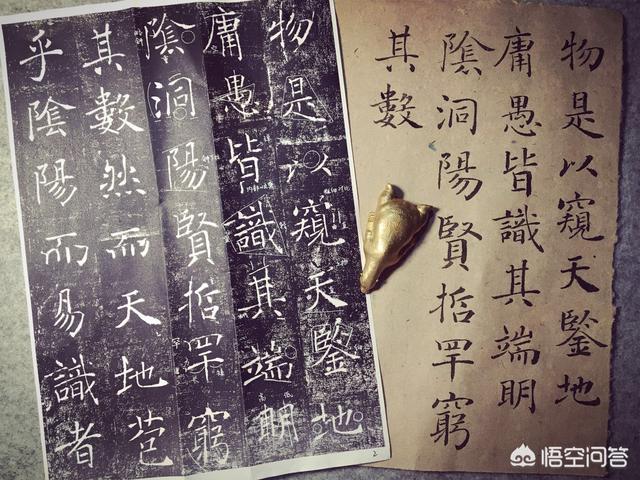 物是以窺天鑒地
庸愚皆識其端明
陰洞陽賢哲罕窮
其數
物是以窺天鑒地
庸愚皆識其端明
陰洞陽賢哲罕窮
其數然而天地苞
乎陰陽而易識者
2
悟空问答